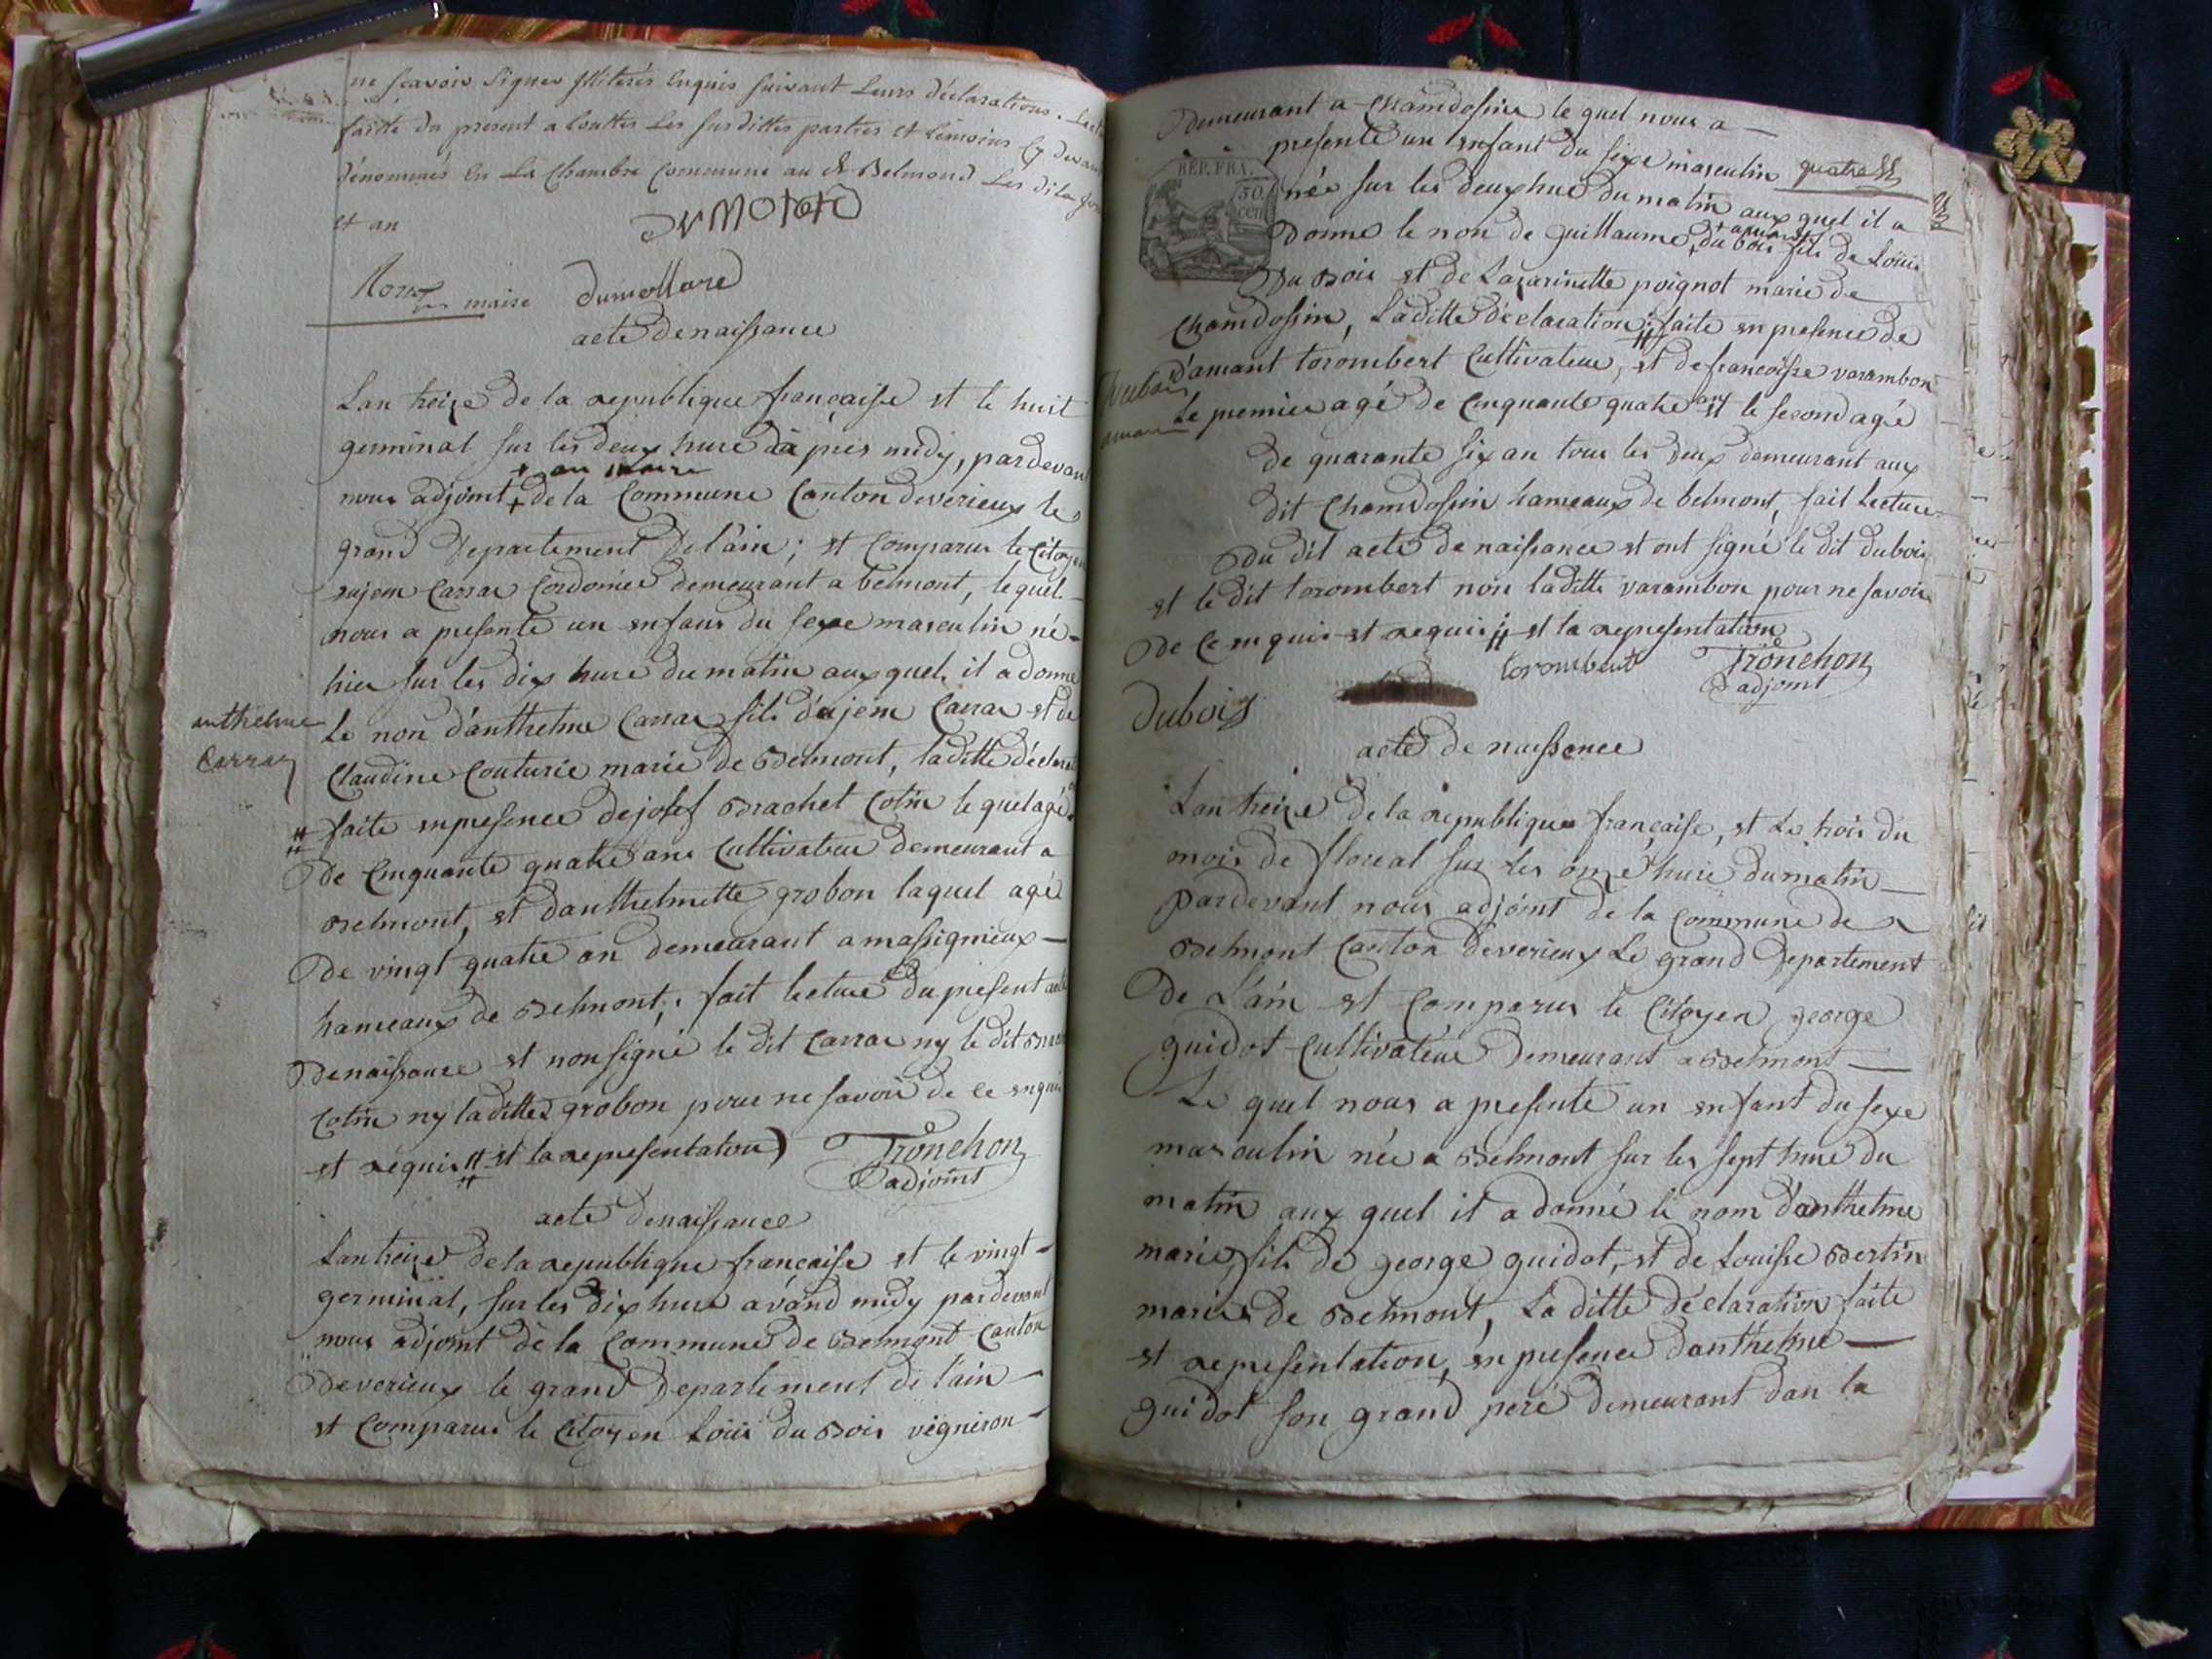 ne scavoir signer Illiterés Enquis suivant Leurs déclarations.
faitte du present a Vouttes Les susdittes parties et témoins Cy devant
dénommés En La Chambre Commune au dt Belmond Les dits jour
et an
maire dumollard
acte de naissance
Lan treize de la republique française et le huit
germinal sur les deux hure da pres midy, pardevant
au maire
nous adjoint + de la Commune Canton de verieux le
grand Departement de l'ain; et Comparus le Citoyen
sujem Carrae Cordonier demeurant a belmont, le quel
nous a presenté un enfans du sexe masculin né
hier sur les dix hure du matin aux quel il a donné
anthelme
Carraz
le non d'anthelme Carrae fils d'ujem Carrae et de
Claudine Couturie marié de Belmont, laditte déclara
faite en presence de josef Brachet Cotin le quel agé
de Cinquante quatre ans Cultivateur demeurant a
Belmont, et d'anthelmette grobon laquel agé
de vingt quatre an demeurant a massignieux
hameaux de Belmont; fait lecture du present acte
de naissance et non signé le dit Carrae ny le dit
Cotin ny laditte grobon pour ne savoir de ce enquis
et requis et la representation
Tronchon
adjoint
acte de naissance
Lan treize de la republique française et le vingt
germinal, sur les dix hure avand midy pardevant
nous adjoint de la Commune de Belmont Canton
de verieux le grand Departement de l'ain
et Comparus le Citoyen Loüis du Bois vigneron
Demeurant a Chamdossin le quel nous a
presenté un enfant du sexe masculin
quatre
REP. FRA.
50.
cent
née sur les deux hure du matin aux quel il a
Donné le non de guillaume du bois fils de Loüis
Du Bois et de Lazarinette poignot marié de
Chamdossin, Laditte déclaration faite en presence de
Dubois
amant
d'amant torombert Cultivateur, et de francoisse varambon
Le premier agé de Cinquante quatre ans et le second agé
de quarante six an tous les deux demeurant aux
dit Chamdossin hameaux de belmont, fait Lecture
Du dit acte de naissance et ont signé le dit dubois
et le dit torombert non laditte varambon pour ne savoir
de Ce enquis et requis et la representation
torombert
Tronchon
adjoint
Dubois
acte de naissance
Lan treize de la republique française, et Le trois du
mois de floreal sur les onze hure du matin
Pardevant nous adjoint de la Commune de
Belmont Canton de verieux Le grand Departement
De L'ain et Comparus le Citoyen george
guidot Cultivateur Demeurant a Belmont
Le quel nous a presenté un enfant du sexe
masculin née a Belmont sur les sept hure du
matin aux quel il a donné le nom d'anthelme
marie, fils de george guidot, et de Louisse Bertin
marié de Belmont, La ditte déclaration faite
et representation, en presence d'anthelme
guidot son grand pere demeurant dan la